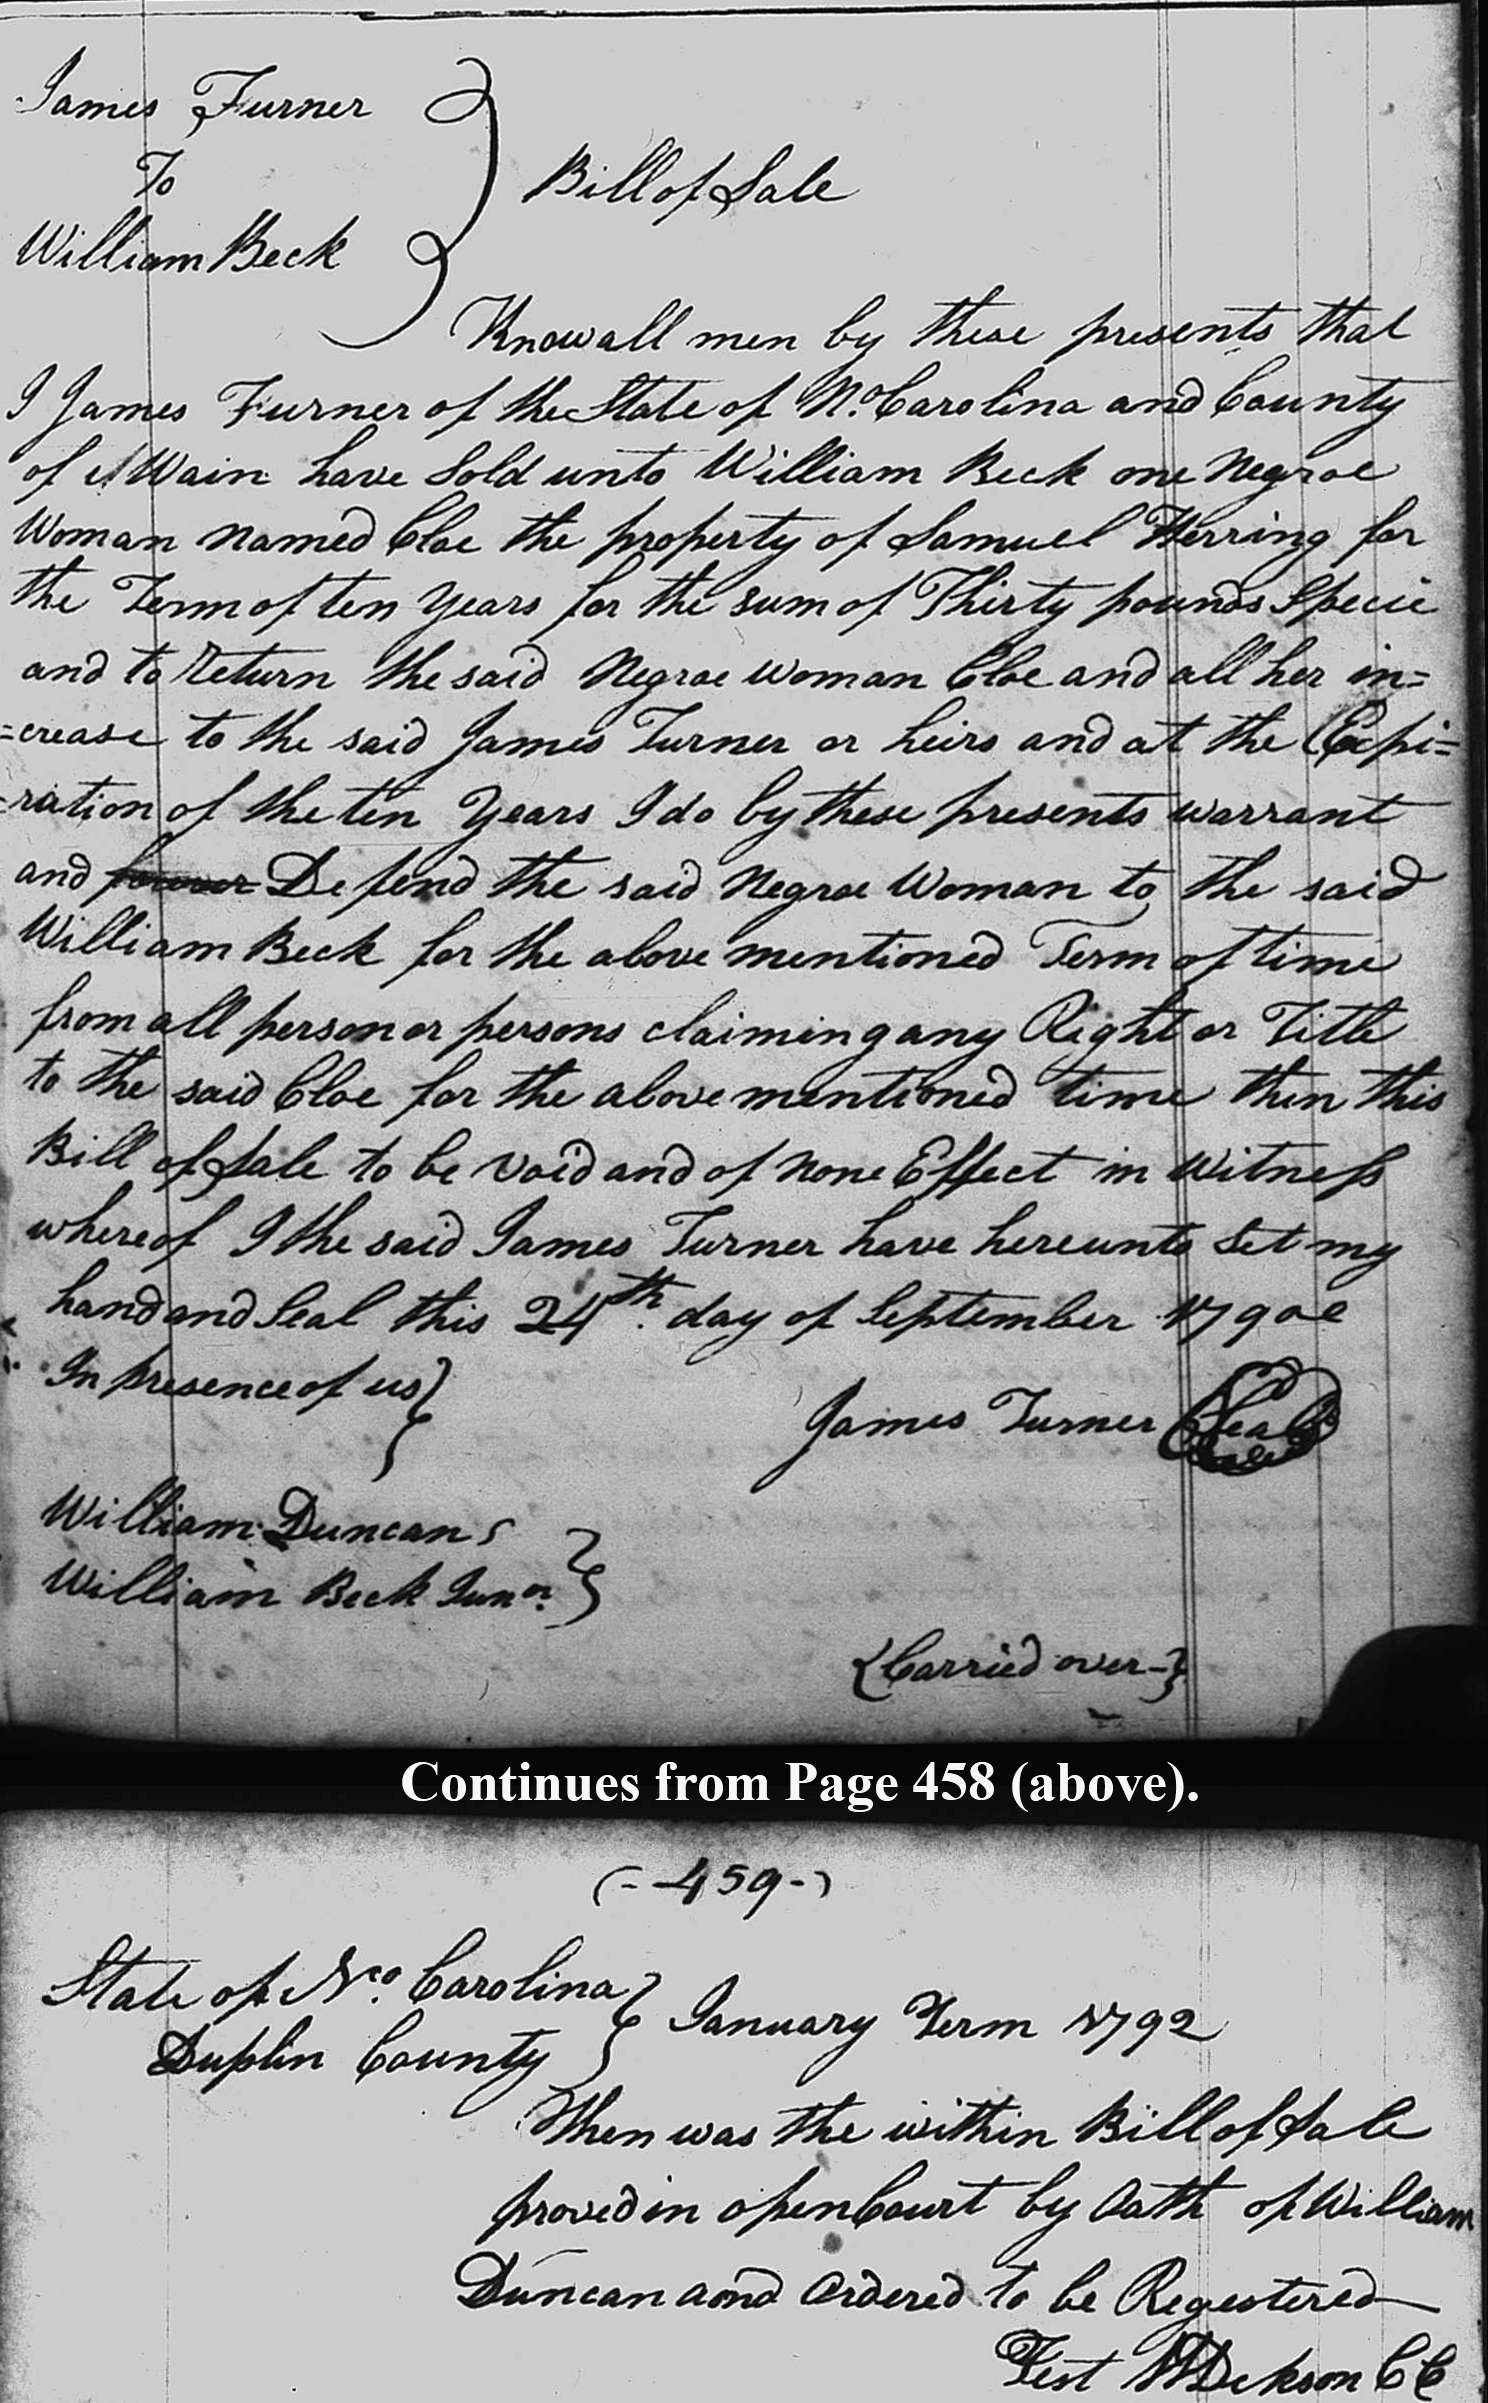 James Turner
To
William Beck
Bill of Sale
Know all men by these presents that
I James Turner of the State of No. Carolina and County
of Wain have Sold unto William Beck one Negroe
Woman Named Cloe the property of Samuel Herring for
the Term of ten Years for the sum of Thirty pounds Specie
and to Return the said Negroe Woman Cloe and all her in=
=crease to the said James Turner or heirs and at the Expi=
=ration of the ten Years I do by these presents warrant
and forever Defend the said Negroe Woman to the said
William Beck for the above mentioned Term of time
from all person or persons claiming any Right or Title
to the said Cloe for the above mentioned time then this
Bill of Sale to be void and of None Effect in Witness
whereof I the said James Turner have hereunto Set my
hand and Seal this 24th. day of September
In presence of us
James Turner Seal
William Duncan
William Beck Junor.
{Carried over-}
Continues from Page 458 (above).
(-459-)
State of No. Carolina
Duplin County
January Term 1792
Then was the within Bill of Sale
proved in open Court by Oath of William
Duncan and Ordered to be Regestered
Test W Dickson CC